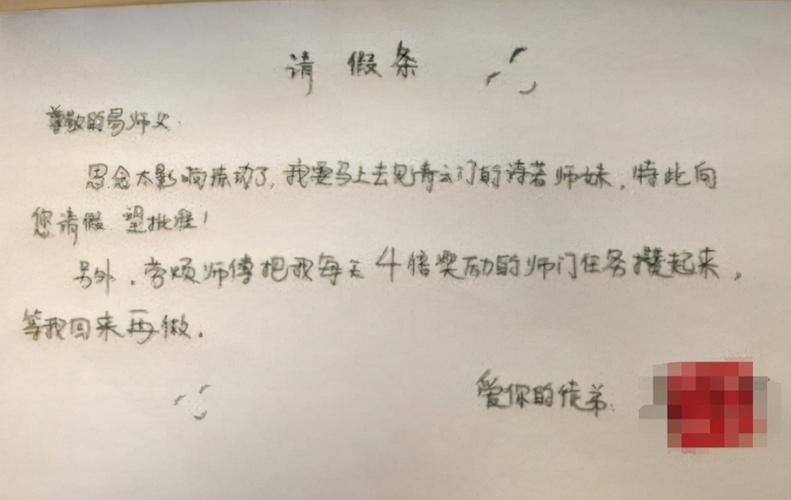 请假条
尊敬的易师父
思念太影响练功了，我要马上去见青云门的诗若师妹，特此向
您请假 望批准！
另外，劳烦师傅把我每天4倍奖励的师门任务攒起来，
等我回来再做。
爱你的徒弟：